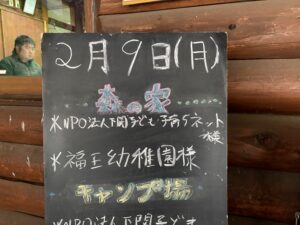 2月9日(月)
森の家
※NPO法人下関子ども・子育ちネット
様
※福王幼稚園様
キャンプ場
※NPO法人下関子ども